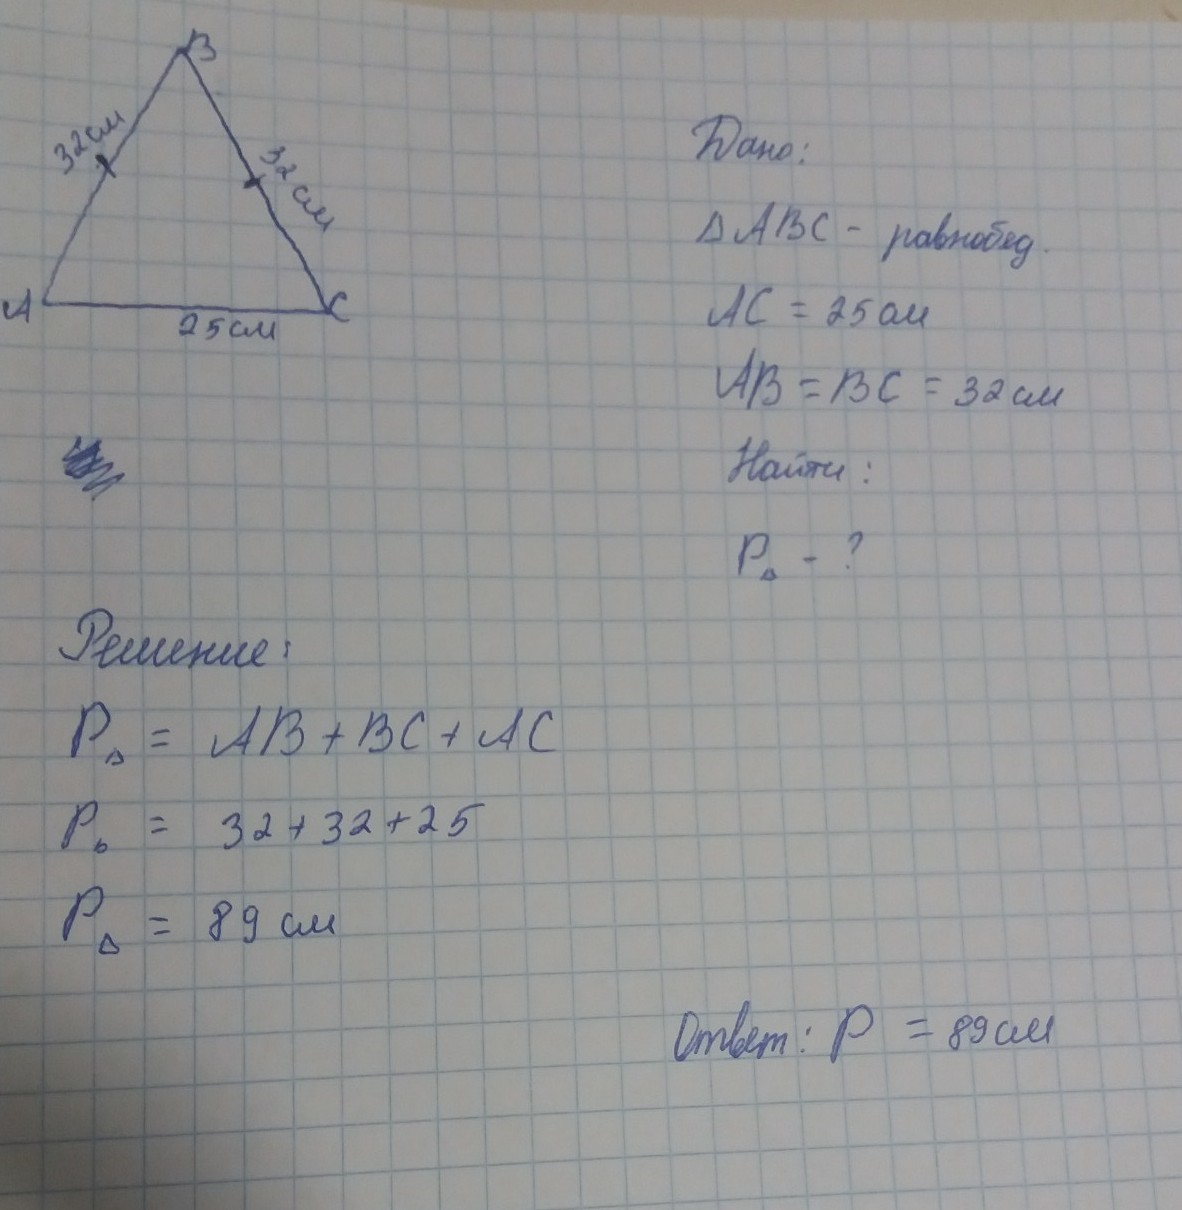 B
32см
32см
A
C
25см
Дано:
ΔABC - равнобед.
AC = 25см
AB = BC = 32см
Найти:
PΔ - ?
Решение:
PΔ = AB + BC + AC
PΔ = 32 + 32 + 25
PΔ = 89 см
Ответ: P = 89см